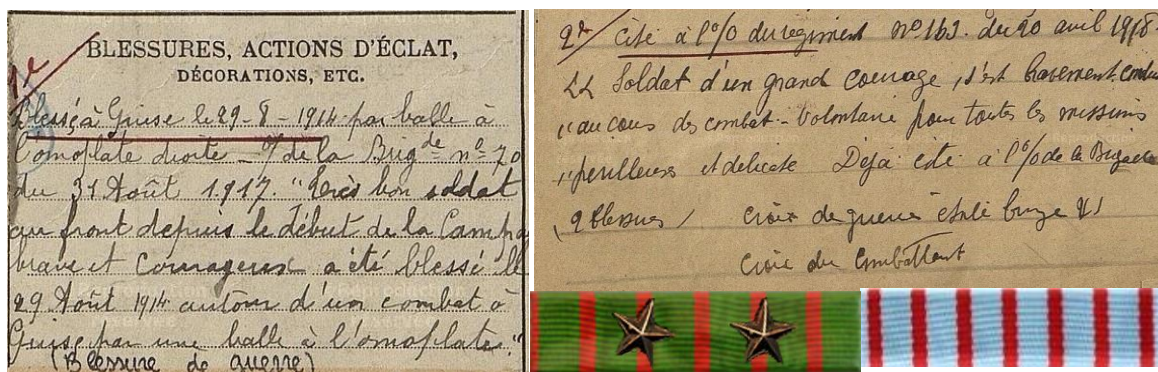 1e
BLESSURES, ACTIONS D'ÉCLAT,
DÉCORATIONS, ETC.
Blessé à Guise le 29-8-1914 par balle à
l'omoplate droite - o/ de la Brigde no 70
du 31 Août 1917. "Très bon soldat
au front depuis le début de la Campa
brave et courageux a été blessé le
29 Août 1914 autour d'un combat à
Guise par une balle à l'omoplate."
(Blessure de guerre)
2e/ Cité à l'o/o du régiment no 163 du 20 avril 1918
Soldat d'un grand courage, s'est bravement condui
"au cours des combat - Volontaire pour toutes les missions
"périlleuses et délicate Déjà cité à l'o/o de la Brigade
(2 blessures / Croix de guerre étoile bronze
Croix du Combattant